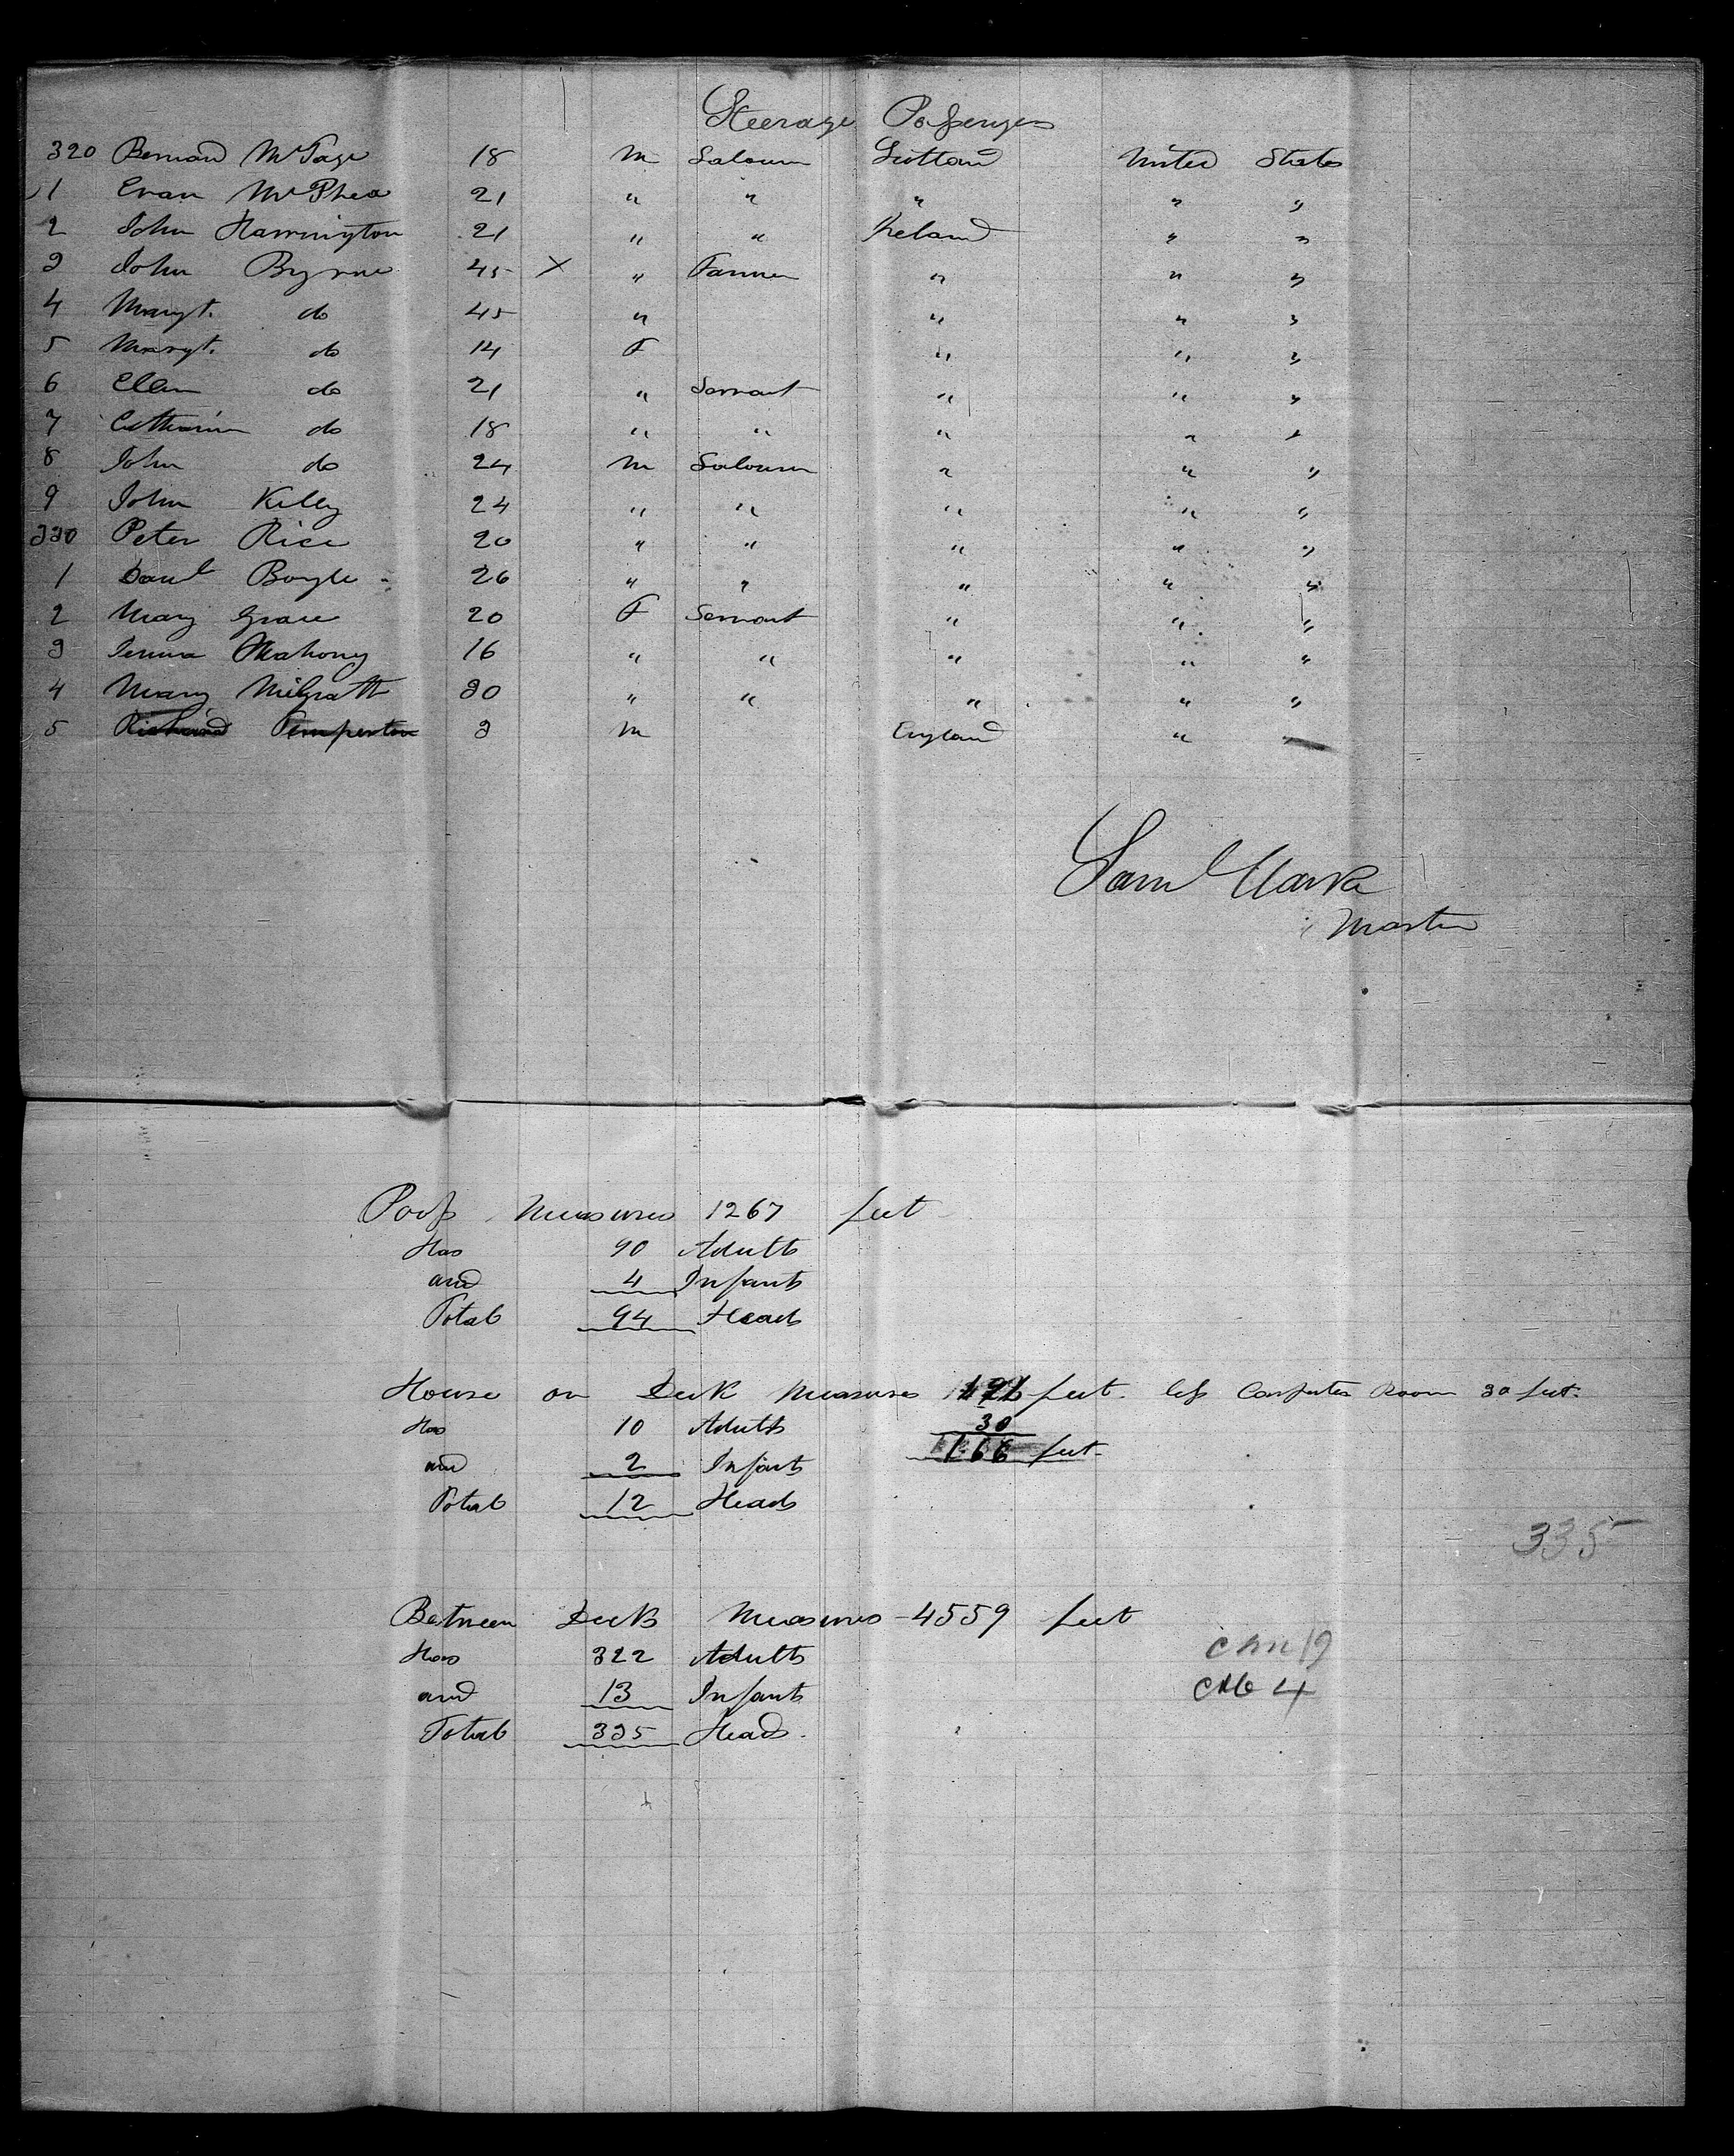 Steerage Passengers
320 Bernard McTage 18 M Labourer Scotland United States
1 Evan McPhea 21 " " " " "
2 John Harrington 21 " " Ireland " "
3 John Byrne 45 X " Farmer " " "
4 Margt. do 45 " " " "
5 Margt. do 14 F " " "
6 Ellen do 21 " Servant " " "
7 Catharine do 18 " " " " "
8 John do 24 M Labourer " " "
9 John Kelly 24 " " " " "
330 Peter Rice 20 " " " " "
1 Danl Boyle 26 " " " " "
2 Mary Grace 20 F Servant " " "
3 Mahony 16 " " " " "
4 Mary McGrath 30 " " " " "
5 Richard Temperton 3 M England "
Saml Clark
Master
Poop Measures 1267 feet
Has 90 Adults
and 4 Infants
Total 94 Heads
House on Deck Measures feet less Carpenter Room 30 feet.
Has 10 Adults 30
and 2 Infants 166 feet
Total 12 Heads
335
Between Decks Measures 4559 feet
Has 322 Adults
and 13 Infants
Total 335 Heads.